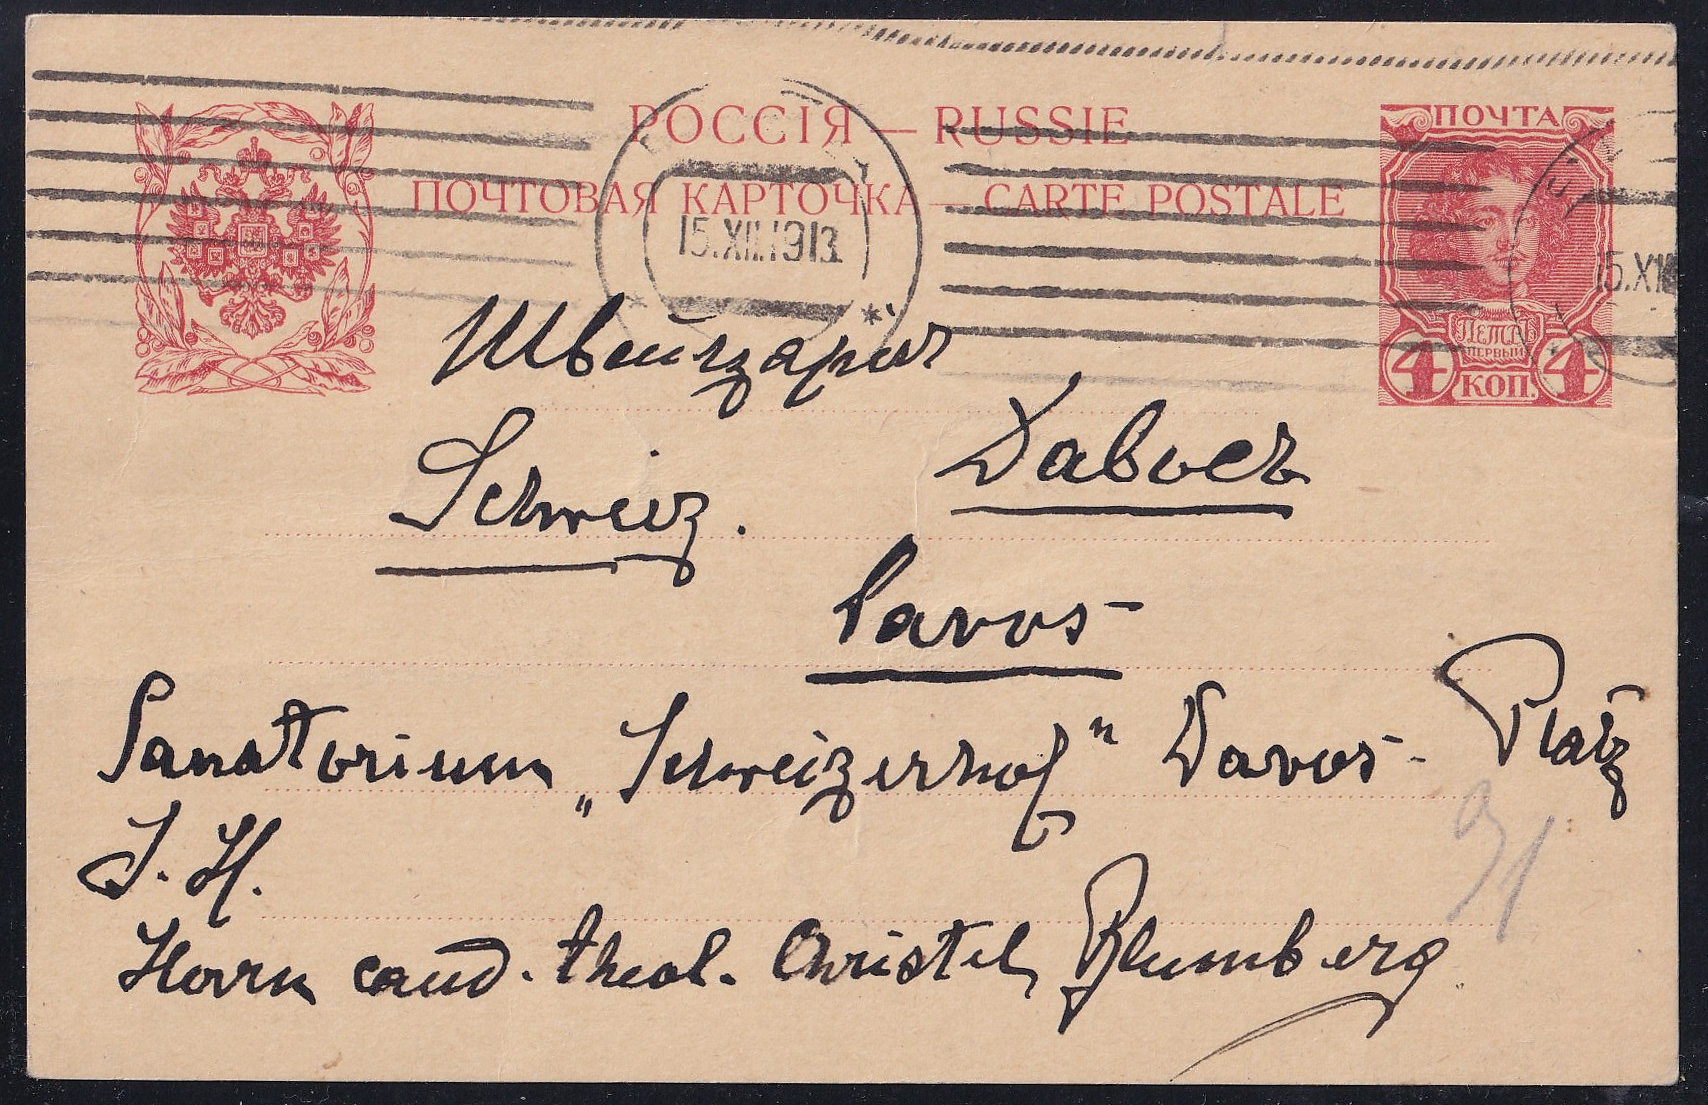 РОССІЯ — RUSSIE
ПОЧТОВАЯ КАРТОЧКА — CARTE POSTALE
ПОЧТА
ПЕТРЪ
ПЕРВЫЙ
4 КОП. 4
15.XII.1913
15.XII
Швейцарія
Schweiz. Давосъ
Davos
Sanatorium „Schweizerhof" Davos-Platz
S. H.
Herrn cand. theol. Christel Blumberg
91